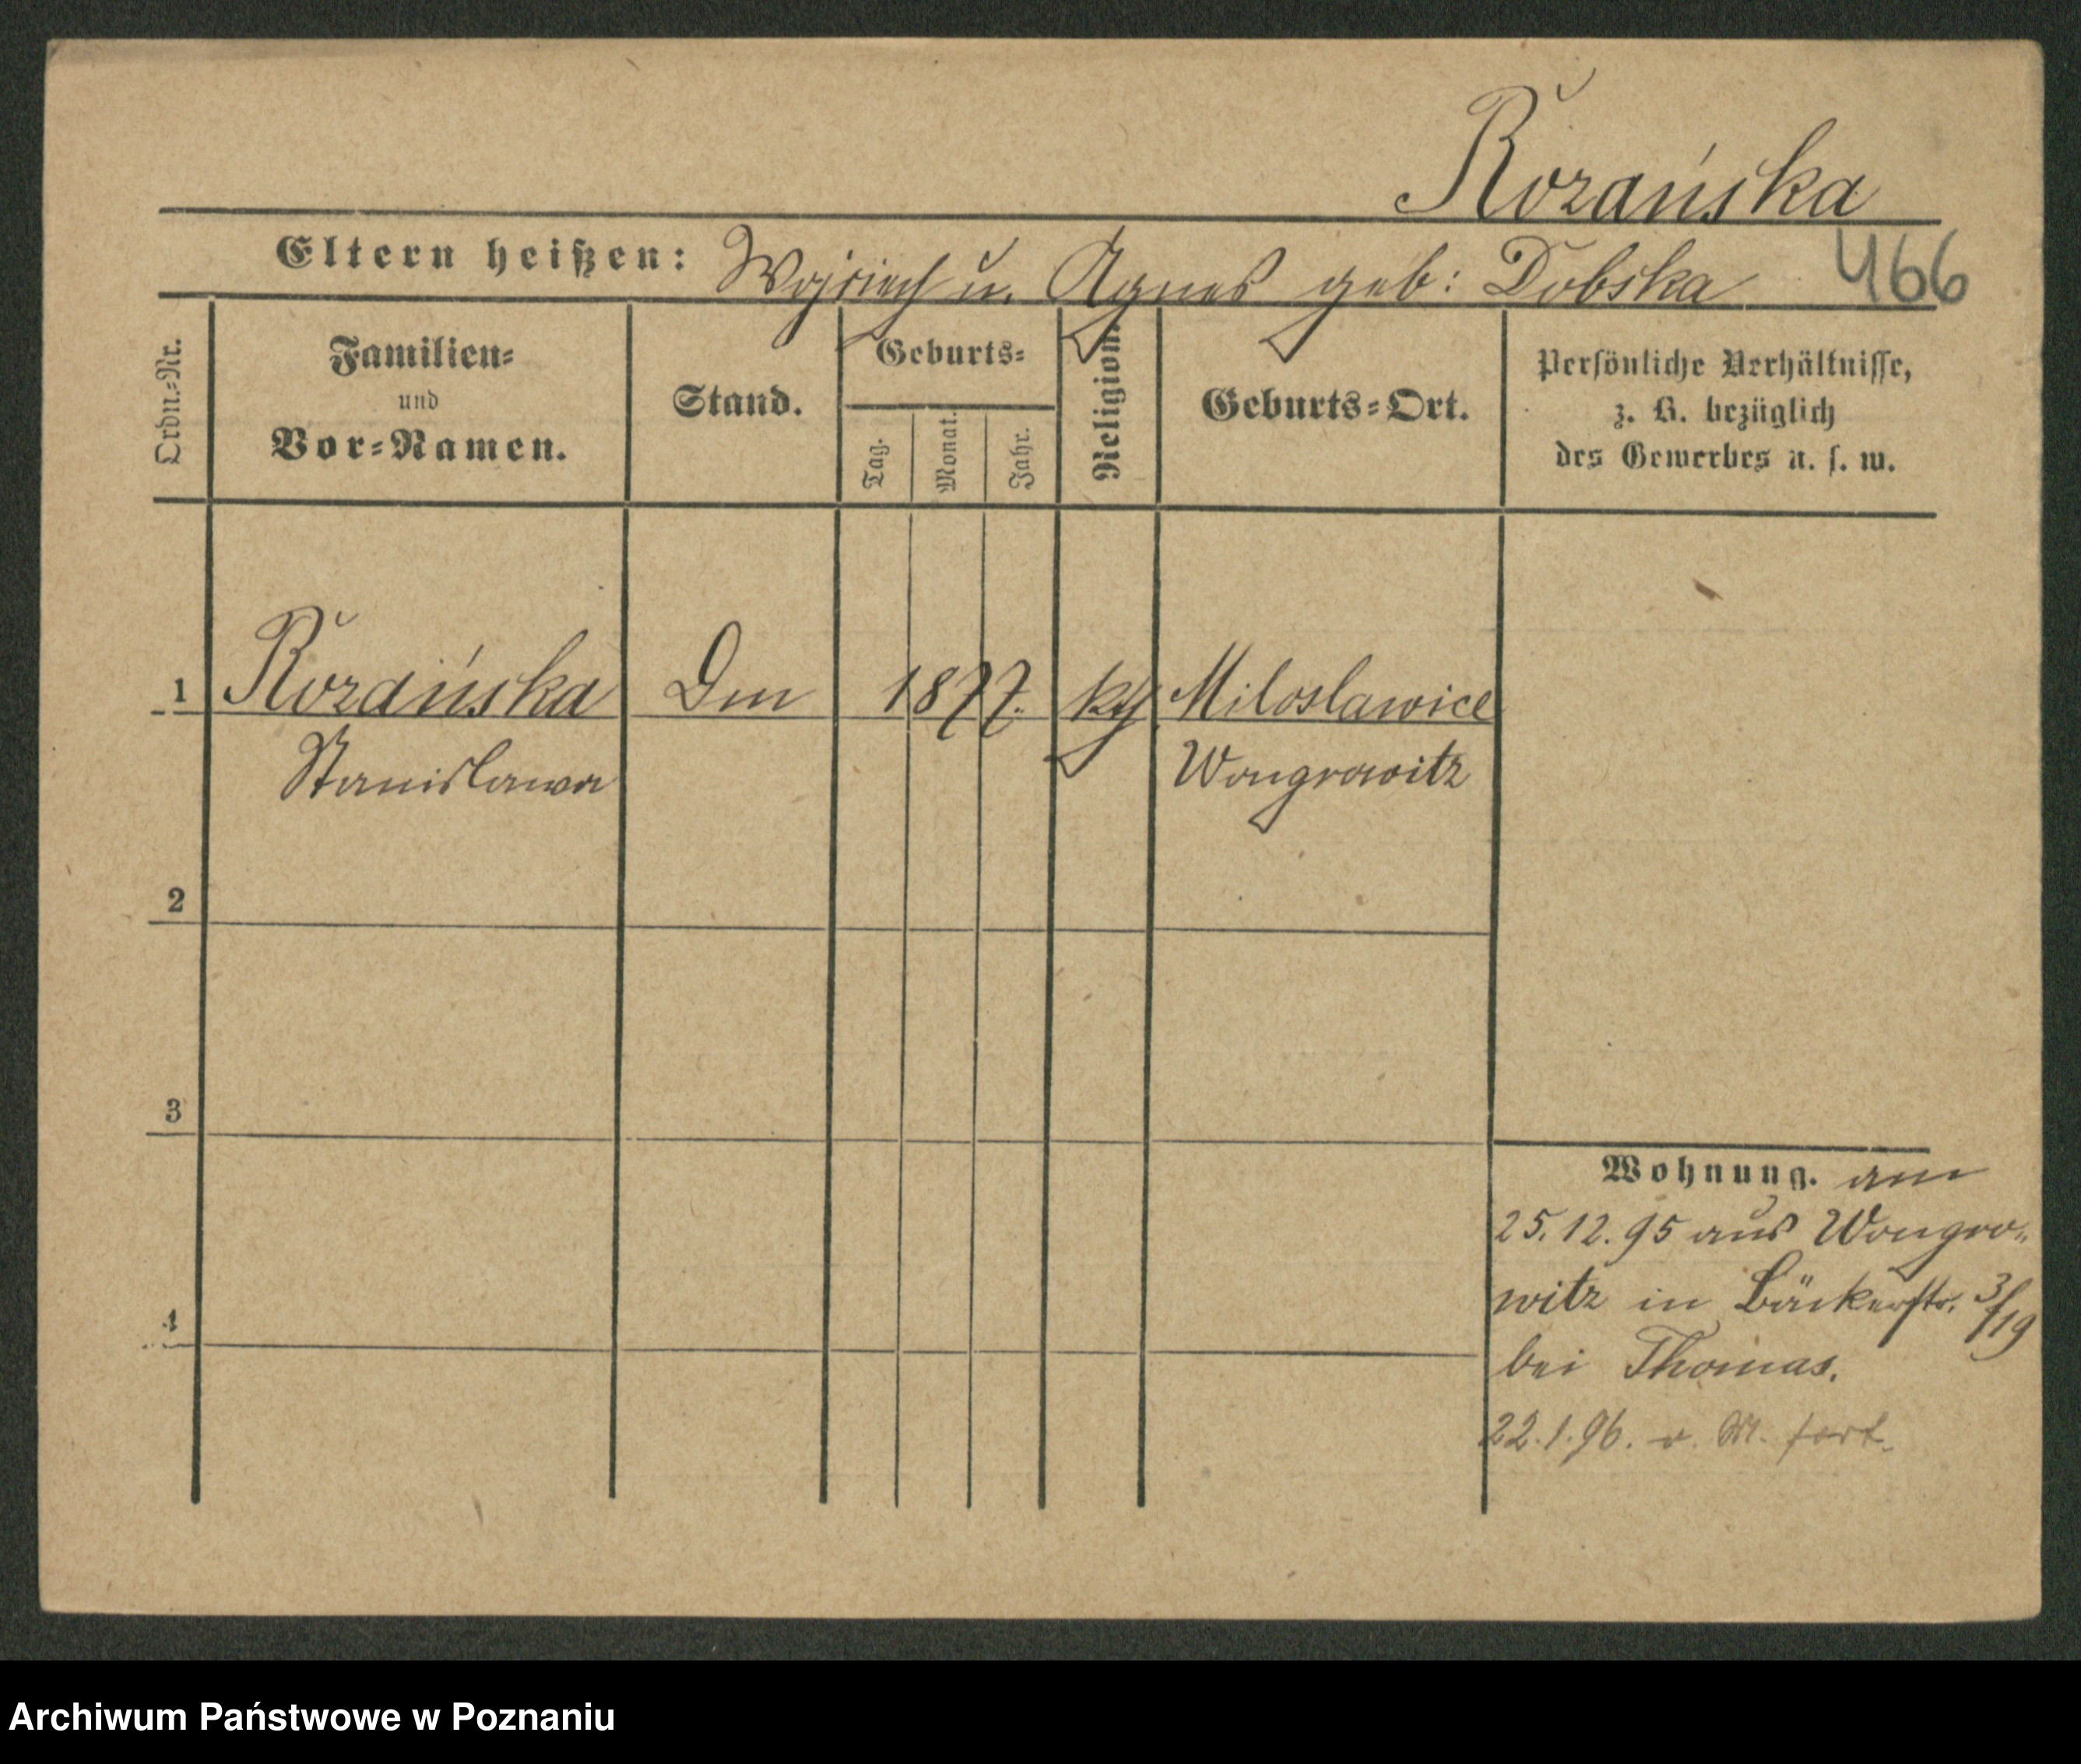 Rozańska
Eltern heißen: Wojciech u. Agnes geb: Dobska 466
Ordn.-Nr.
Familien-
und
Vor-Namen.
Stand.
Geburts-
Tag.
Monat.
Jahr.
Religion.
Geburts-Ort.
Persönliche Verhältnisse,
z. B. bezüglich
des Gewerbes u. s. w.
1 Rozańska 1877. kth Miloslawice
Stanislawa Wongrowitz
2
3
4
Wohnung. am
25.12.95 aus Wongro-
witz in Bäckerstr. 3/19
bei Thomas.
22.1.96. v. W. fort.
Archiwum Państwowe w Poznaniu